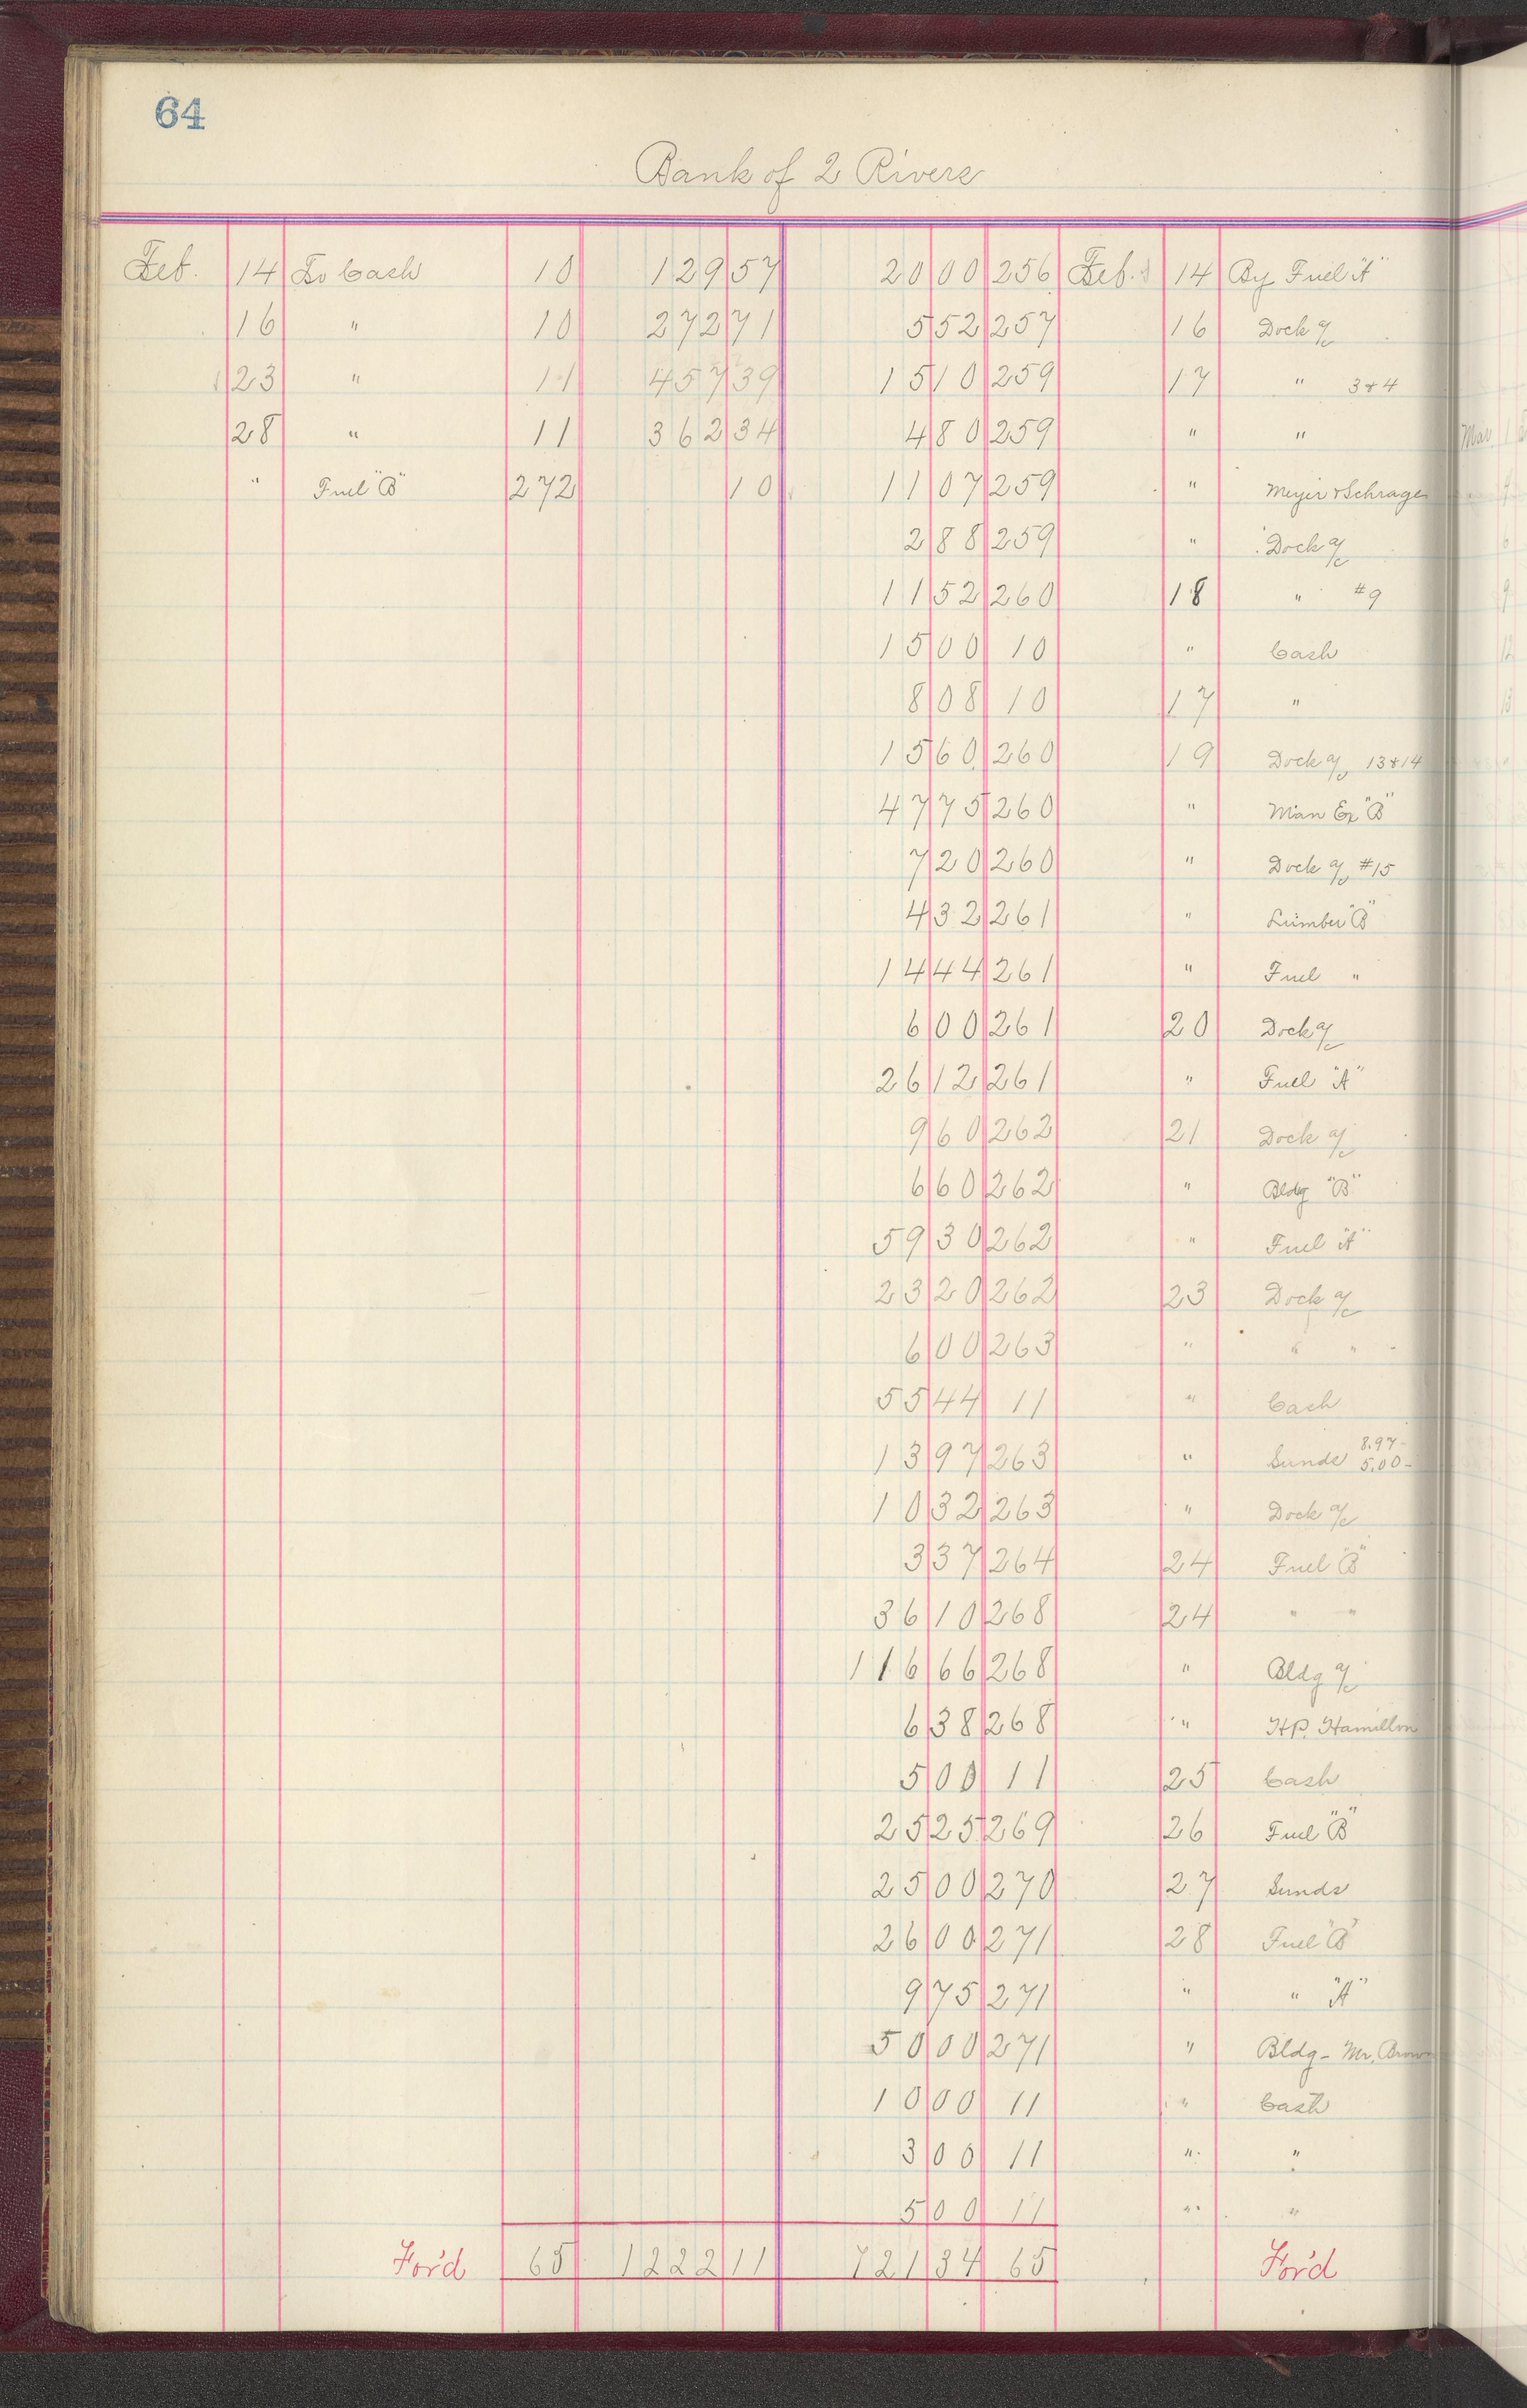 64
Bank of 2 Rivers
Feb. 14 To Cash 10 129 57 20 00 256 Feb. 14 By Fuel "A"
16 " 10 272 71 5 52 257 16 Dock a/c
23 " 11 457 39 15 10 259 17 " 3 & 4
28 " 11 362 34 4 80 259 " "
" Fuel "B" 272 10 11 07 259 " Meyer & Schrage
2 88 259 " Dock a/c
11 52 260 18 " #9
15 00 10 " Cash
8 08 10 17 "
15 60 260 19 Dock a/c 13 & 14
47 75 260 " Man Ex "B"
7 20 260 " Dock a/c #15
4 32 261 " Lumber "B"
14 44 261 " Fuel "
6 00 261 20 Dock a/c
26 12 261 " Fuel "A"
9 60 262 21 Dock a/c
6 60 262 " Bldg "B"
59 30 262 " Fuel "A"
23 20 262 23 Dock a/c
6 00 263 " " "
55 44 11 " Cash
13 97 263 " Sunds 8.97 - 5.00 -
10 32 263 " Dock a/c
3 37 264 24 Fuel "B"
36 10 268 24 " "
116 66 268 " Bldg a/c
6 38 268 " H.P. Hamilton
5 00 11 25 Cash
25 25 269 26 Fuel "B"
25 00 270 27 Sunds
26 00 271 28 Fuel "B"
9 75 271 " " "A"
50 00 271 " Bldg - Mr. Brown
10 00 11 " Cash
3 00 11 " "
5 00 11 " "
For'd 65 1222 11 721 34 65 For'd
Mar 1